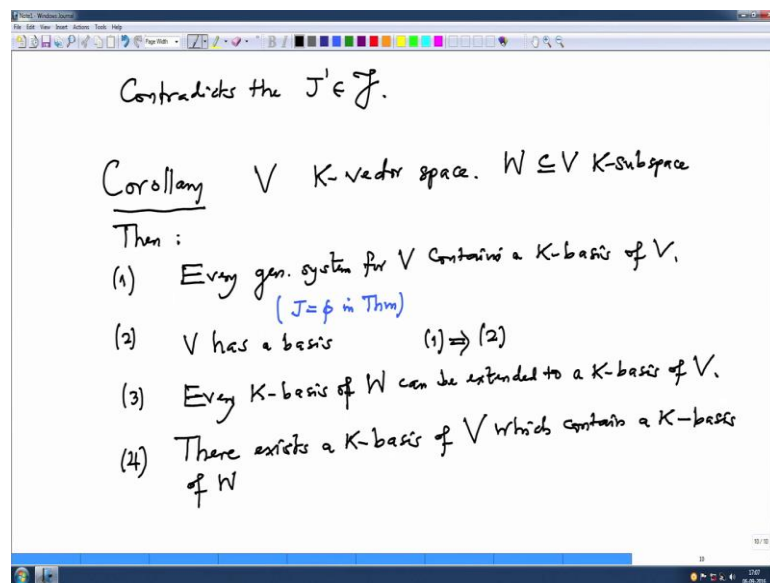 Note1 - Windows Journal
File Edit View Insert Actions Tools Help
Page Width
B I
Contradicts the J' ∈ 𝒥.
Corollary V K-vector space. W ⊆ V K-subspace
Then :
(1) Every gen. system for V contains a K-basis of V.
(J=ϕ in Thm)
(2) V has a basis (1) ⇒ (2)
(3) Every K-basis of W can be extended to a K-basis of V.
(4) There exists a K-basis of V which contain a K-basis
of W
10/10
10
17:07